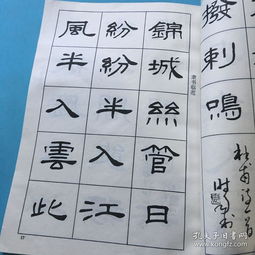 撥剌鳴
杜甫诗二首
錦城絲管日
紛紛半入江
風半入雲此
17
孔夫子旧书网